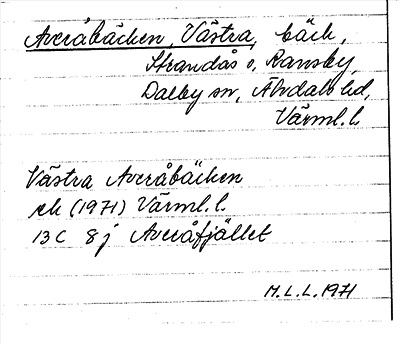 Averåbäcken, Västra, bäck,
Strandås o, Ransby,
Dalby sn, Älvdals hd,
Värml. l.
Västra Averåbäcken
ek (1971) Värml. l.
13 C 8 j Averåfjället
M. L. L. 1971